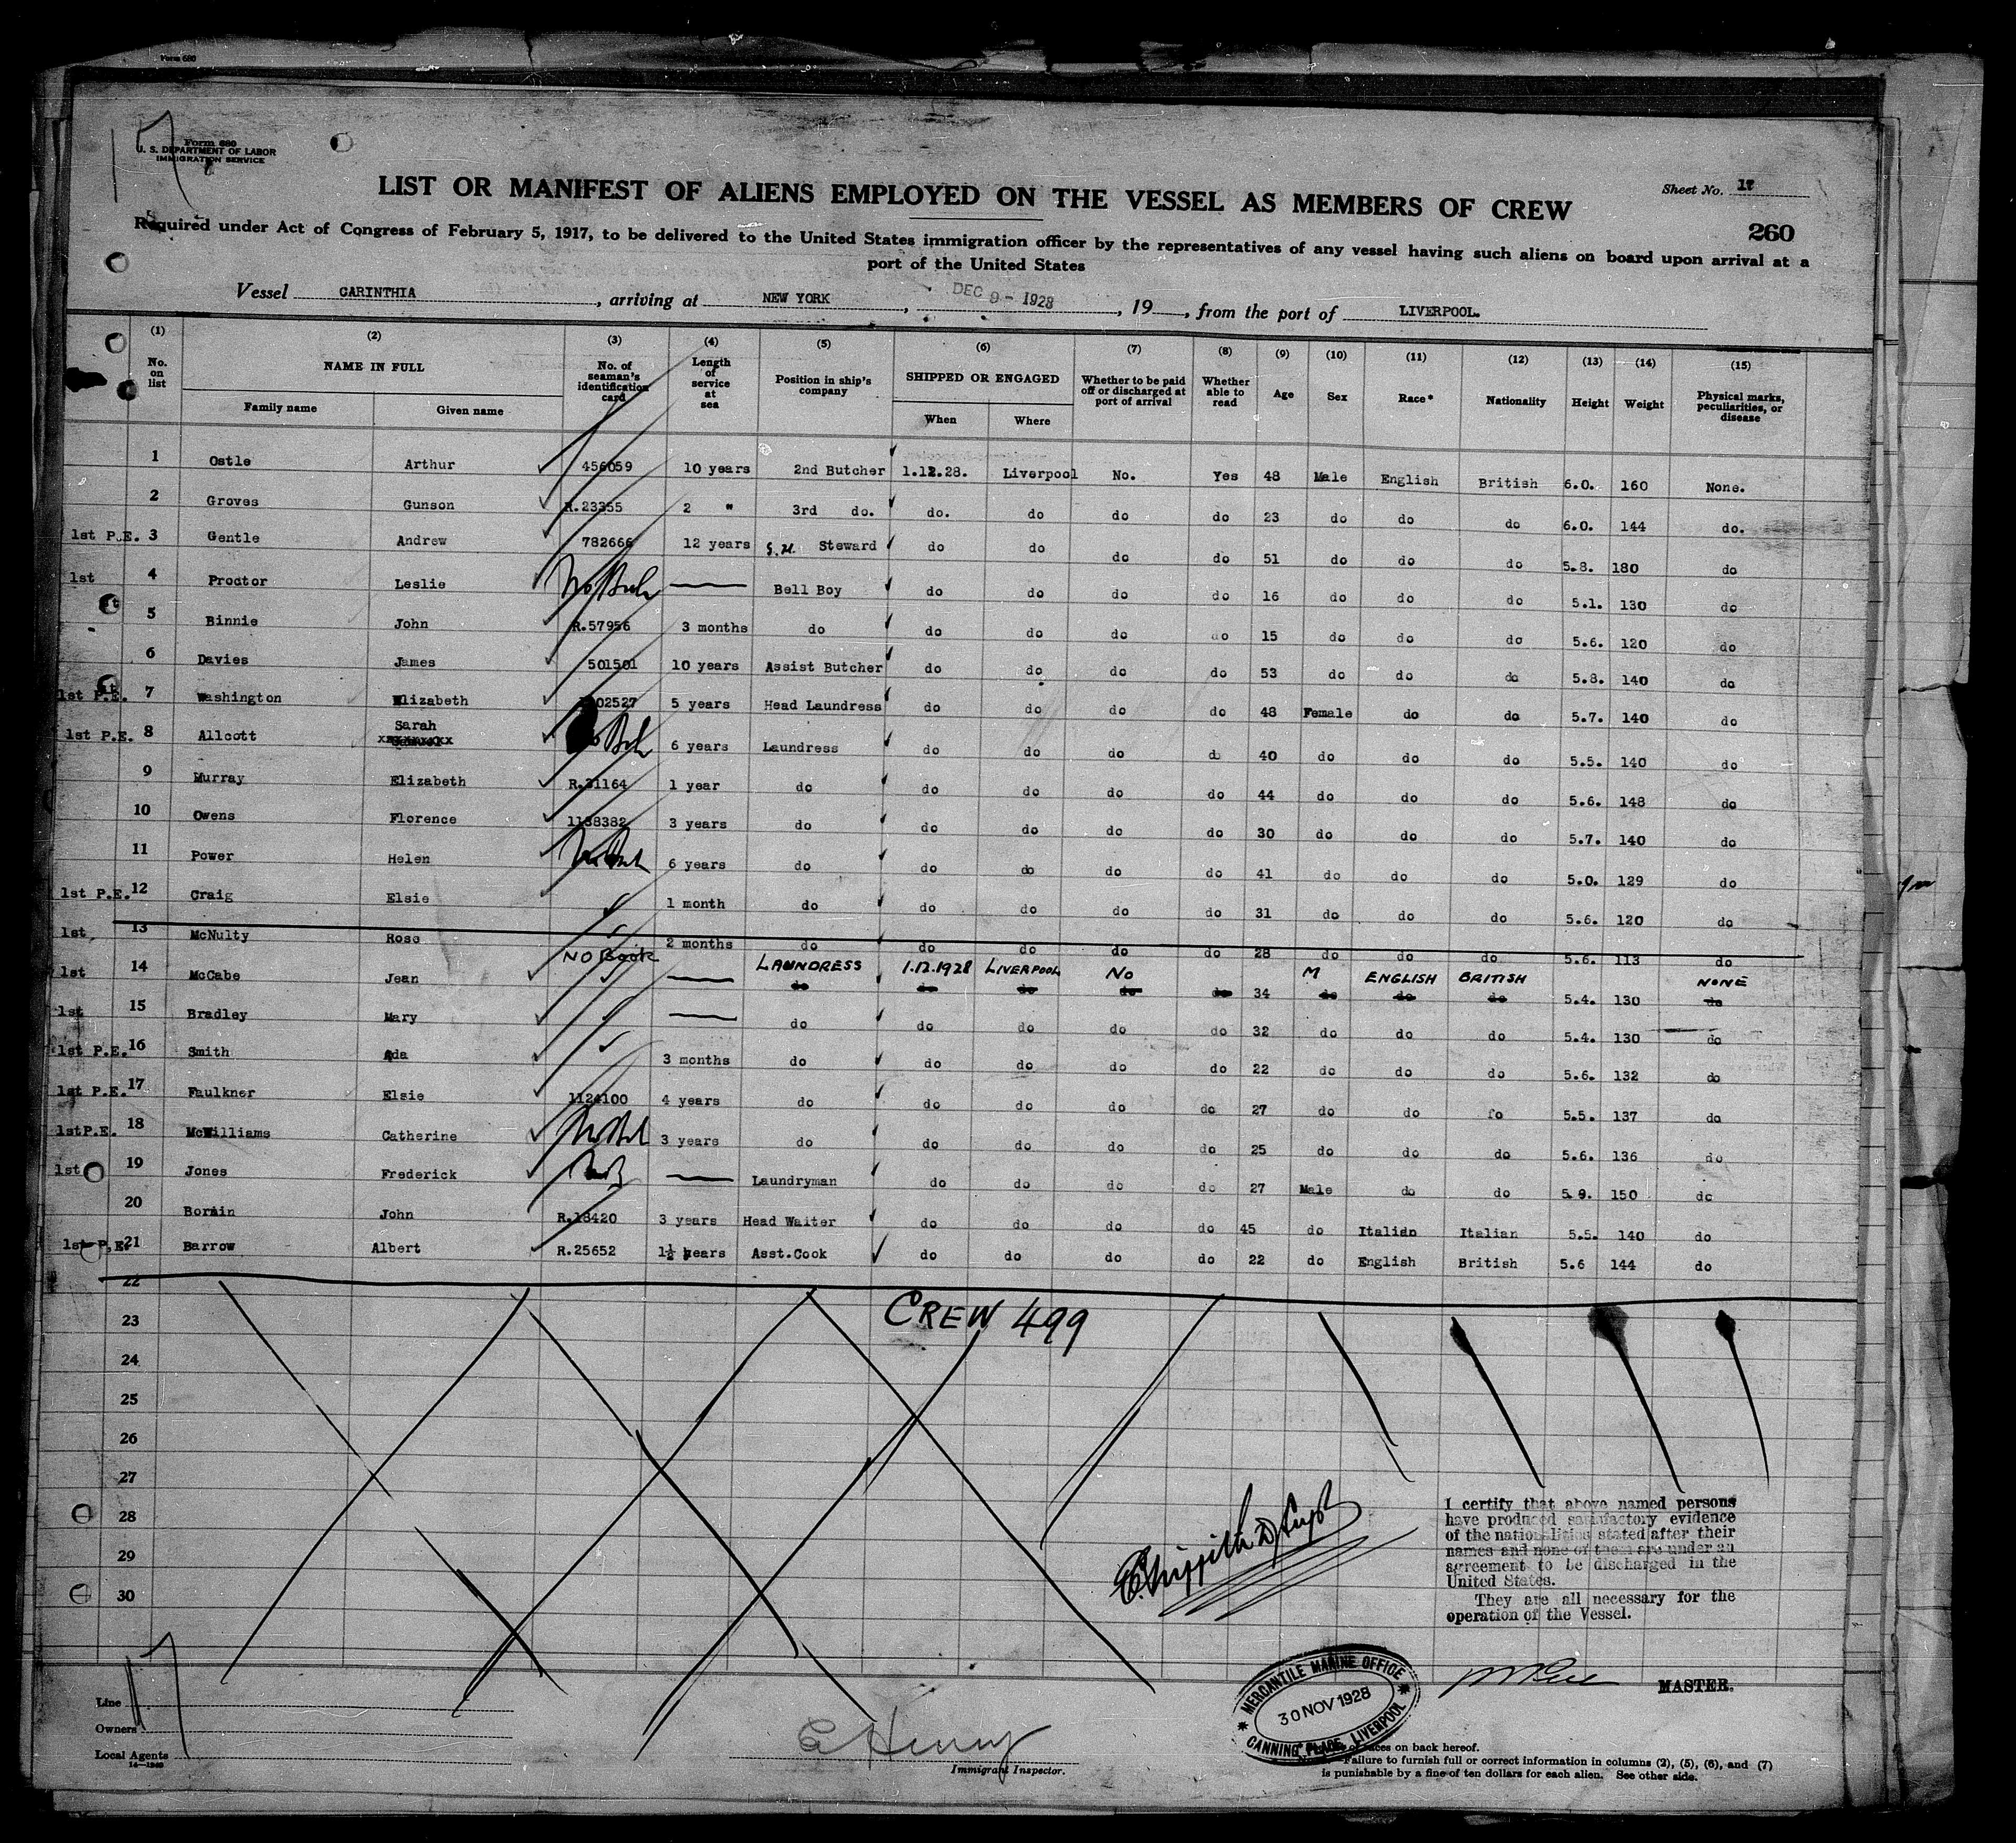 Form 680
Form 680
U. S. DEPARTMENT OF LABOR
IMMIGRATION SERVICE
17
LIST OR MANIFEST OF ALIENS EMPLOYED ON THE VESSEL AS MEMBERS OF CREW
Sheet No. 17
260
Required under Act of Congress of February 5, 1917, to be delivered to the United States immigration officer by the representatives of any vessel having such aliens on board upon arrival at a
port of the United States
Vessel CARINTHIA, arriving at NEW YORK, DEC 9 - 1928, 19, from the port of LIVERPOOL.
(1) (2) (3) (4) (5) (6) (7) (8) (9) (10) (11) (12) (13) (14) (15)
No. on list NAME IN FULL No. of seaman's identification card Length of service at sea Position in ship's company SHIPPED OR ENGAGED Whether to be paid off or discharged at port of arrival Whether able to read Age Sex Race* Nationality Height Weight Physical marks, peculiarities, or disease
Family name Given name When Where
1 Ostle Arthur 456059 10 years 2nd Butcher 1.12.28. Liverpool No. Yes 48 Male English British 6.0. 160 None.
2 Groves Gunson R.23355 2 " 3rd do. do. do do do 23 do do do 6.0. 144 do.
1st P.E. 3 Gentle Andrew 782666 12 years Steward do do do do 51 do do do 5.8. 180 do
1st 4 Proctor Leslie No Book — Bell Boy do do do do 16 do do do 5.1. 130 do
5 Binnie John R.57956 3 months do do do do do 15 do do do 5.6. 120 do
6 Davies James 501501 10 years Assist Butcher do do do do 53 do do do 5.8. 140 do
1st P.E. 7 Washington Elizabeth 02527 5 years Head Laundress do do do do 48 Female do do 5.7. 140 do
1st P.E. 8 Allcott Sarah 6 years Laundress do do do do 40 do do do 5.5. 140 do
9 Murray Elizabeth R.31164 1 year do do do do do 44 do do do 5.6. 148 do
10 Owens Florence 1138382 3 years do do do do do 30 do do do 5.7. 140 do
11 Power Helen No Book 6 years do do do do do 41 do do do 5.0. 129 do
1st P.E. 12 Craig Elsie 1 month do do do do do 31 do do do 5.6. 120 do
1st 13 McNulty Rose 2 months do do do do do 28 do do do 5.6. 113 do
NO Book LAUNDRESS 1.12.1928 LIVERPOOL NO M ENGLISH BRITISH NONE
1st 14 McCabe Jean — do do do do do 34 do do do 5.4. 130 do
1st 15 Bradley Mary — do do do do do 32 do do do 5.4. 130 do
1st P.E. 16 Smith Ada 3 months do do do do do 22 do do do 5.6. 132 do
1st P.E. 17 Faulkner Elsie 1124100 4 years do do do do do 27 do do fo 5.5. 137 do
1stP.E. 18 McWilliams Catherine No Book 3 years do do do do do 25 do do do 5.6. 136 do
1st 19 Jones Frederick — Laundryman do do do do 27 Male do do 5.9. 150 do
20 Borain John R.18420 3 years Head Waiter do do do do 45 do Italian Italian 5.5. 140 do
1st P.E. 21 Barrow Albert R.25652 1½ years Asst.Cook do do do do 22 do English British 5.6 144 do
22
CREW 499
23
24
25
26
27
28
29
30
I certify that above named persons
have produced satisfactory evidence
of the nationalities stated after their
names and none of them are under an
agreement to be discharged in the
United States.
They are all necessary for the
operation of the Vessel.
MASTER.
MERCANTILE MARINE OFFICE
30 NOV 1928
CANNING PLACE, LIVERPOOL
17
Line
Owners
Local Agents
E Henry
Immigrant Inspector.
races on back hereof.
Failure to furnish full or correct information in columns (2), (5), (6), and (7)
is punishable by a fine of ten dollars for each alien. See other side.